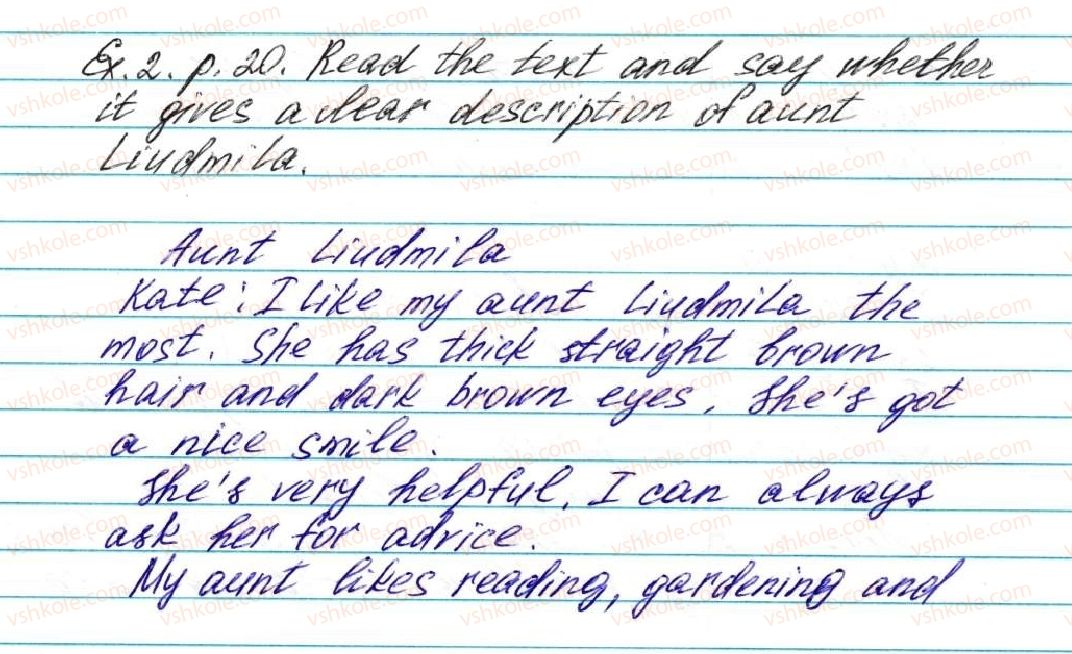 Ex. 2. p. 20. Read the text and say whether
it gives a clear description of aunt
Liudmila.
Aunt Liudmila
Kate: I like my aunt Liudmila the
most. She has thick straight brown
hair and dark brown eyes. She's got
a nice smile.
She's very helpful. I can always
ask her for advice.
My aunt likes reading, gardening and